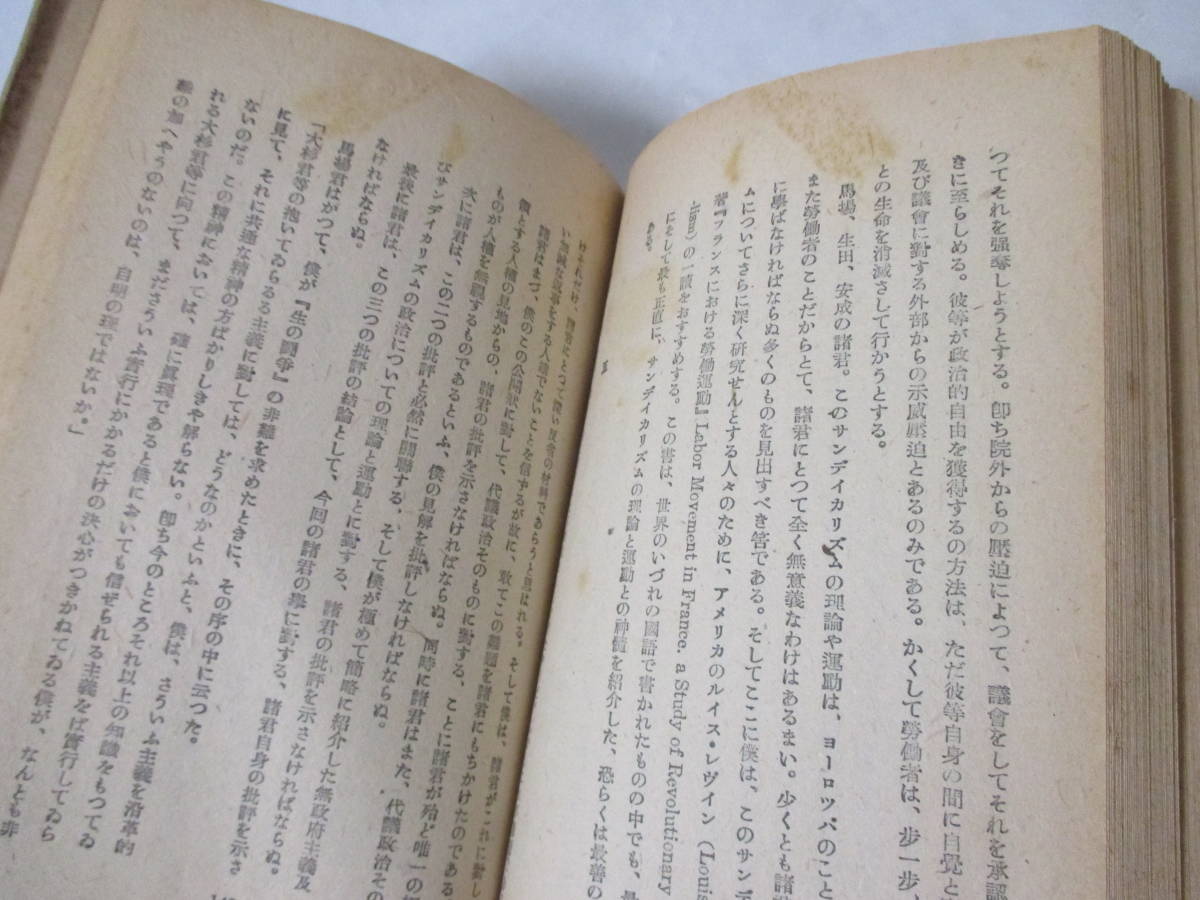 つてそれを强奪しようとする。卽ち院外からの壓迫によつて、議會をしてそれを承認
きに至らしめる。彼等が政治的自由を獲得するの方法は、ただ彼等自身の間に自覺と
及び議會に對する外部からの示威壓迫とあるのみである。かくして勞働者は、步一步、
との生命を消滅さして行かうとする。
馬場、生田、安成の諸君。このサンデイカリズムの理論や運動は、ヨーロツパのこと
また勞働者のことだからとて、諸君にとつて全く無意義なわけはあるまい。少くとも諸
に學ばなければならぬ多くのものを見出すべき筈である。そしてここに僕は、このサンデ
ムについてさらに深く硏究せんとする人々のために、アメリカのルイス・レヴイン (Louis
著『フランスにおける勞働運動』Labor Movement in France. a Study of Revolutionary
-lism) の一讀をおすすめする。この書は、世界のいづれの國語で書かれたものの中でも、最
にそして最も正直に、サンデイカリズムの理論と運動との神髓を紹介した、恐らくは最善の
ある。
けそれだけ、諸君にとつて深い反省の材料であらうと思はれる。そして僕は、諸君がこれに對し
い加減な返事をする人達でないことを信ずるが故に、敢てこの難題を諸君にもちかけたのである
諸君はまづ、僕のこの公開狀に對して、代議政治そのものに對する、ことに諸君が殆ど唯一の
領とする人權の見地からの、諸君の批評を示さなければならぬ。同時に諸君はまた、代議政治その
ものが人權を無視するものであるといふ、僕の見解を批評しなければならぬ。
次に諸君は、この二つの批評と必然に關聯する、そして僕が極めて簡略に紹介した無政府主義及
びサンデイカリズムの政治についての理論と運動とに對する、諸君の批評を示さなければならぬ。
最後に諸君は、この三つの批評の結論として、今回の諸君の擧に對する、諸君自身の批評を示さ
なければならぬ。
馬場君はかつて、僕が『生の鬪爭』の非難を求めたときに、その序の中に云つた。
「大杉君等の抱いてゐらるる主義に對しては、どうなのかといふと、僕は、さういふ主義を沿革的
に見て、それに共通な精神の方ばかりしきや解らない。卽ち今のところそれ以上の知識をもつてゐ
ないのだ。この精神においては、確に眞理であると僕においても信ぜられる主義をば實行してゐら
れる大杉君等に向つて、まださういふ實行にかかるだけの決心がつきかねてゐる僕が、なんとも非
難の加へやうのないのは、自明の理ではないか。」